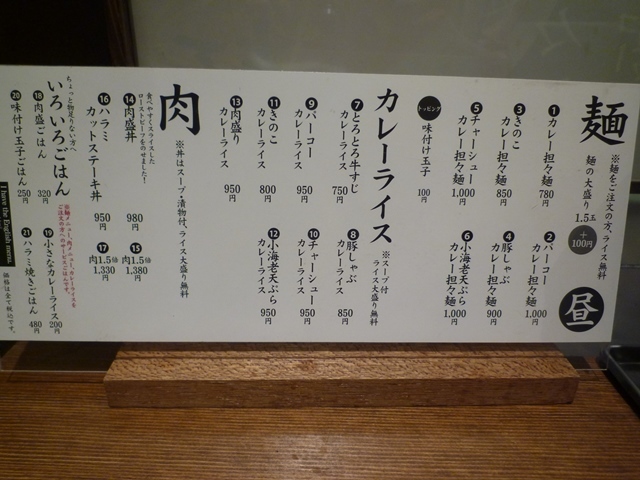 麺
※麺をご注文の方、ライス無料
麺の大盛り1.5玉
+100円
昼
❶カレー担々麺 780円
❷パーコーカレー担々麺 1,000円
❸きのこカレー担々麺 850円
❹豚しゃぶカレー担々麺 900円
❺チャーシューカレー担々麺 1,000円
❻小海老天ぷらカレー担々麺 1,000円
トッピング
味付け玉子 100円
カレーライス
※スープ付
ライス大盛り無料
❼とろとろ牛すじカレーライス 750円
❽豚しゃぶカレーライス 850円
❾パーコーカレーライス 950円
❿チャーシューカレーライス 950円
⓫きのこカレーライス 800円
⓬小海老天ぷらカレーライス 950円
⓭肉盛りカレーライス 950円
肉
※丼はスープ、漬物付、ライス大盛り無料
食べやすくスライスした
ローストビーフをのせました!
⓮肉盛丼 980円
⓯肉1.5倍 1,380円
⓰ハラミカットステーキ丼 950円
⓱肉1.5倍 1,330円
ちょっと物足りない方へ
いろいろごはん
※麺メニュー、肉メニュー、カレーライスを
ご注文の方へのサービスごはんです。
⓲肉盛ごはん 320円
⓳小さなカレーライス 200円
⓴味付け玉子ごはん 250円
㉑ハラミ焼きごはん 480円
I have the English menu.
価格は全て税込です。